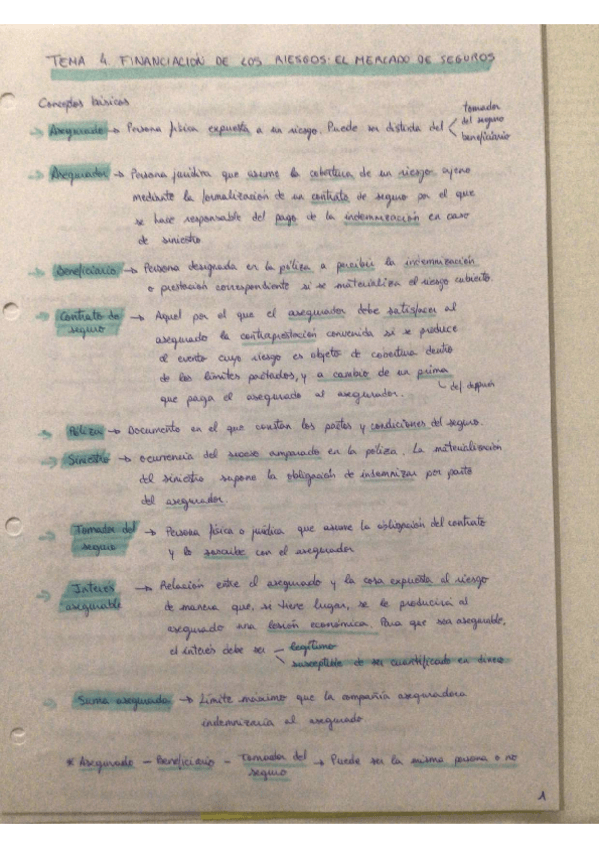 TEMA 4. FINANCIACIÓN DE LOS RIESGOS: EL MERCADO DE SEGUROS
Conceptos básicos
→ Asegurado → Persona física expuesta a un riesgo. Puede ser distinta del < tomador del seguro
beneficiario
→ Asegurador → Persona jurídica que asume la cobertura de un riesgo ajeno
mediante la formalización de un contrato de seguro por el que
se hace responsable del pago de la indemnización en caso
de siniestro
→ Beneficiario → Persona designada en la póliza a percibir la indemnización
o prestación correspondiente si se materializa el riesgo cubierto.
→ Contrato de seguro → Aquel por el que el asegurador debe satisfacer al
asegurado la contraprestación convenida si se produce
el evento cuyo riesgo es objeto de cobertura dentro
de los límites pactados, y a cambio de un prima
que paga el asegurado al asegurador.
def después
→ Póliza → Documento en el que constan los pactos y condiciones del seguro.
→ Siniestro → ocurrencia del suceso amparado en la póliza. La materialización
del siniestro supone la obligación de indemnizar por parte
del asegurador
→ Tomador del seguro → Persona física o jurídica que asume la obligación del contrato
y lo suscribe con el asegurador
→ Interés asegurable → Relación entre el asegurado y la cosa expuesta al riesgo
de manera que, se tiene lugar, se le producirá al
asegurado una lesión económica. Para que sea asegurable,
el interés debe ser – legítimo
susceptible de ser cuantificado en dinero
→ Suma asegurada → Límite máximo que la compañía aseguradora
indemnizaría al asegurado.
* Asegurado – Beneficiario – Tomador del seguro → Puede ser la misma persona o no
1